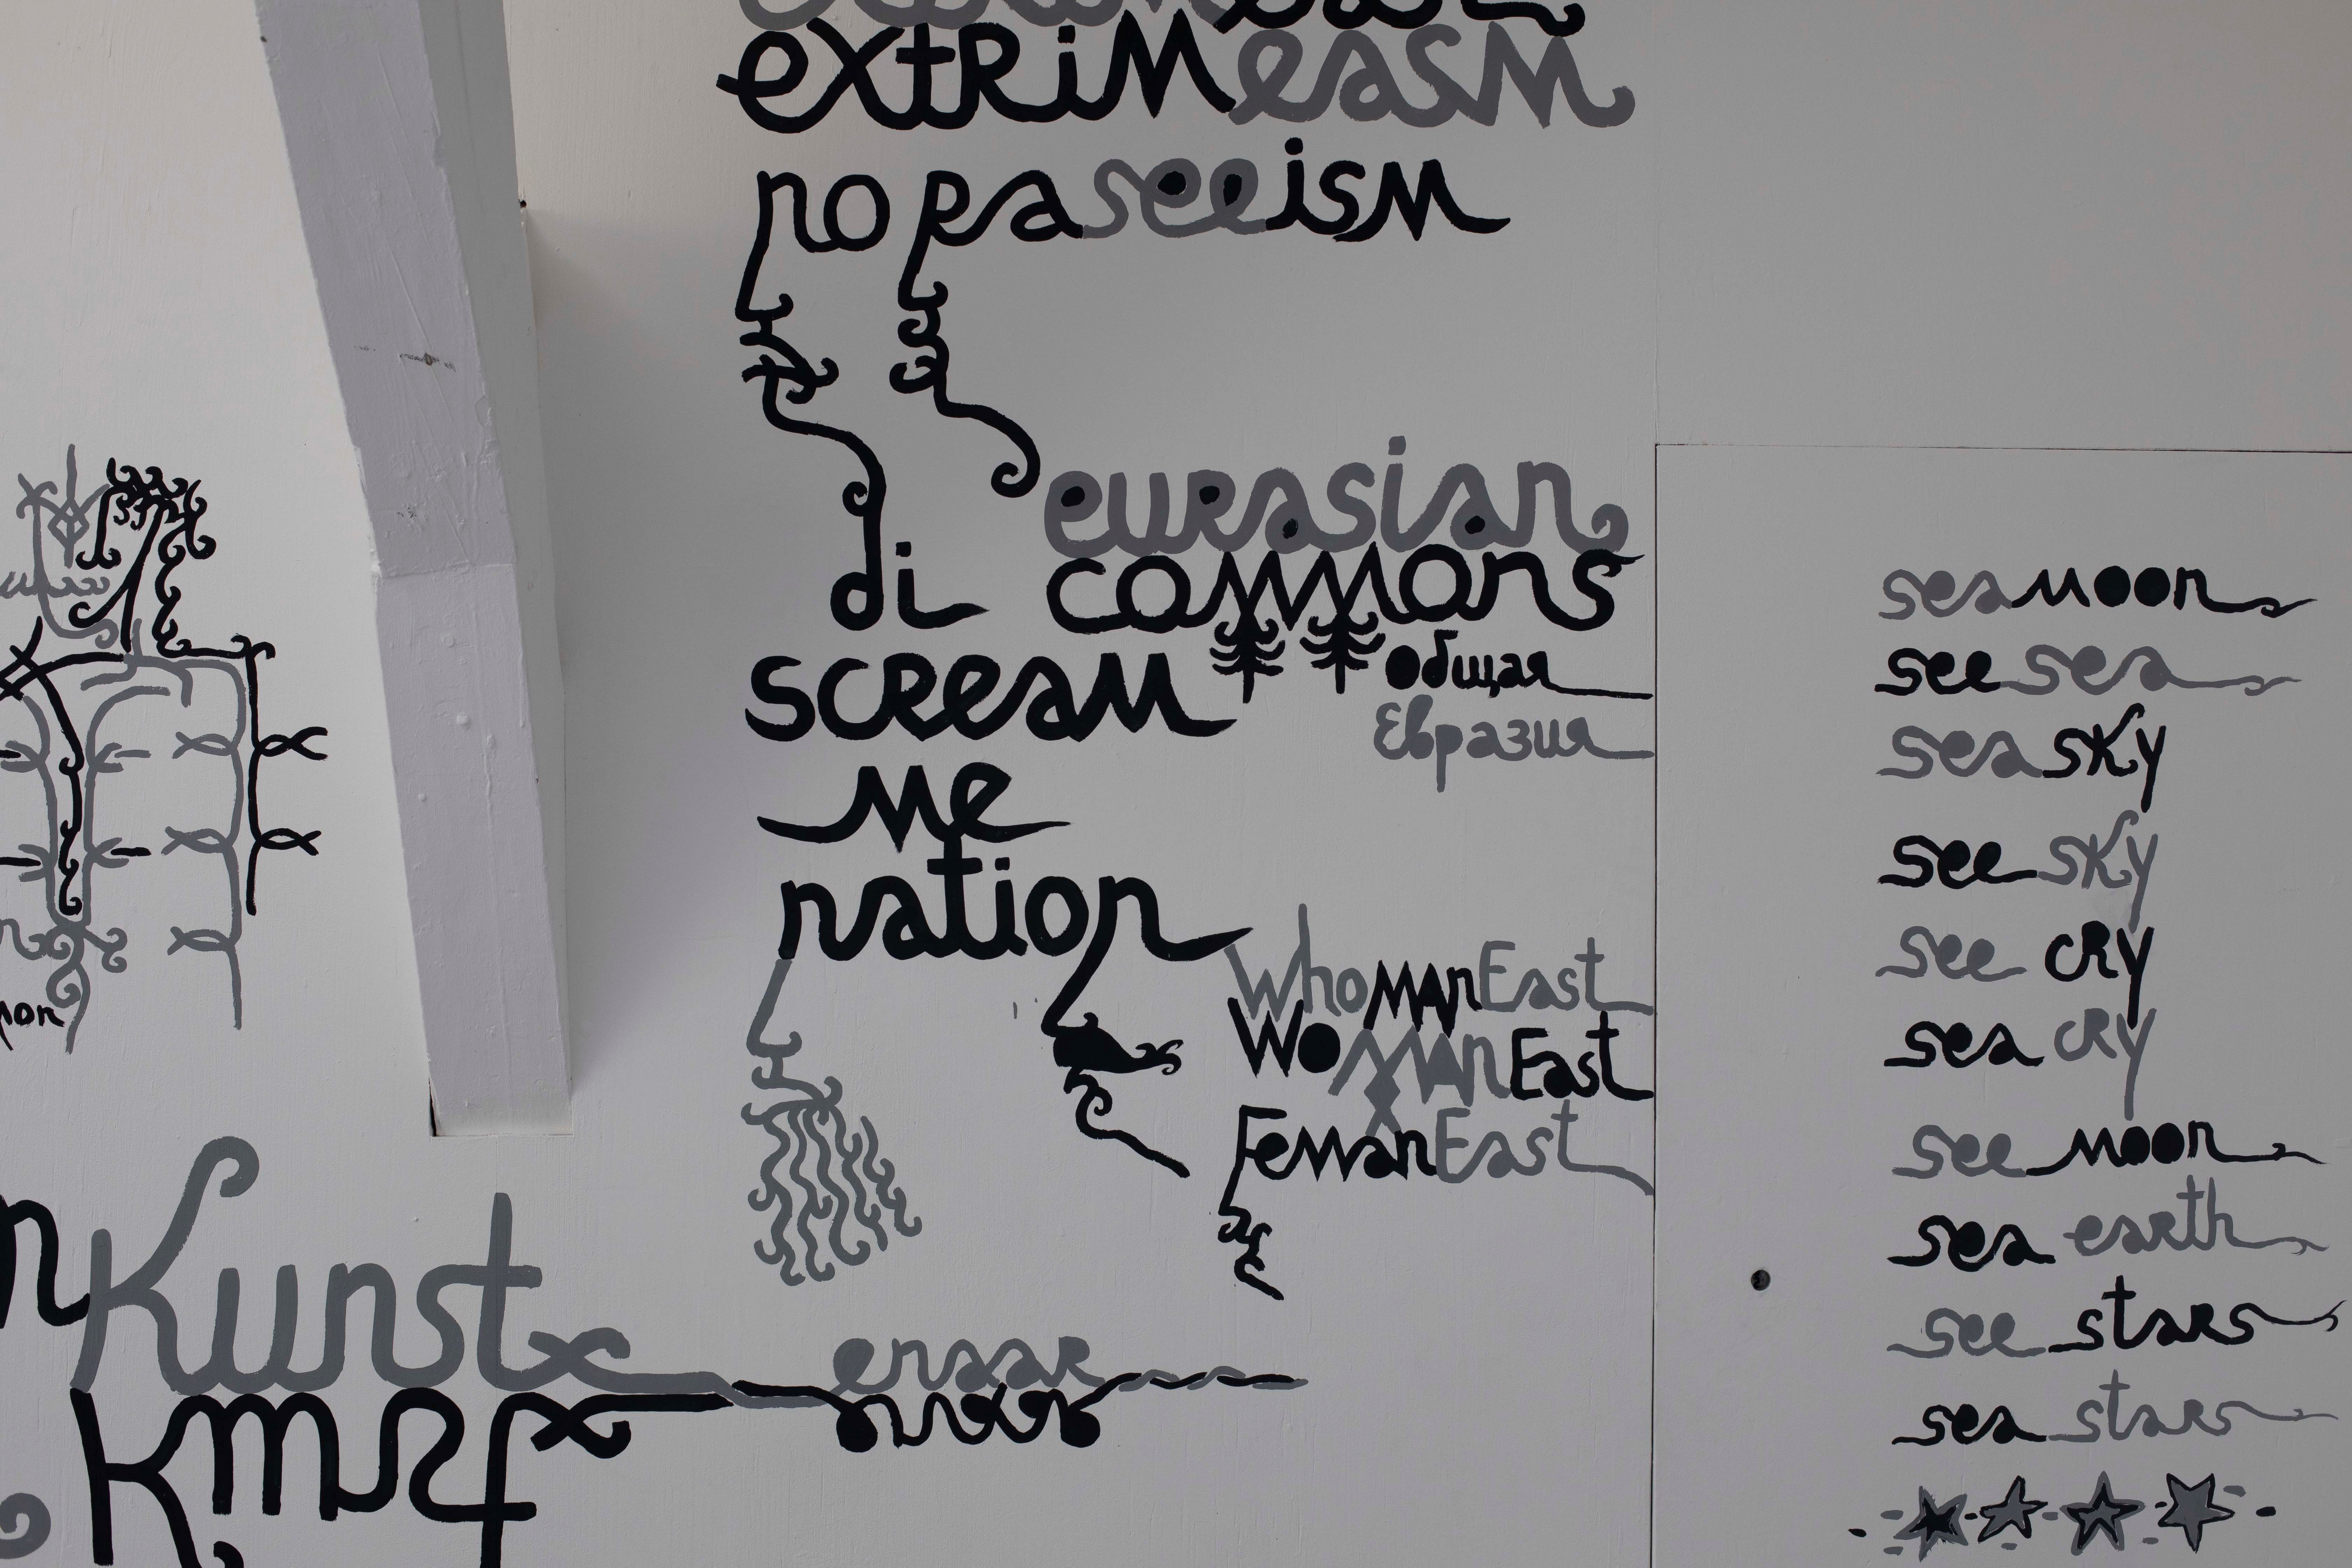 extRiMeasM
no Raseeism
eurasian
di commons
общая
scReeaM
Евразия
Me
nation
WhoMAnEast
WoMANEast
FeMManEast
Kunst
seamoon
see sea
seasky
see sky
see cRy
sea cRy
see moon
sea earth
see stars
sea stars